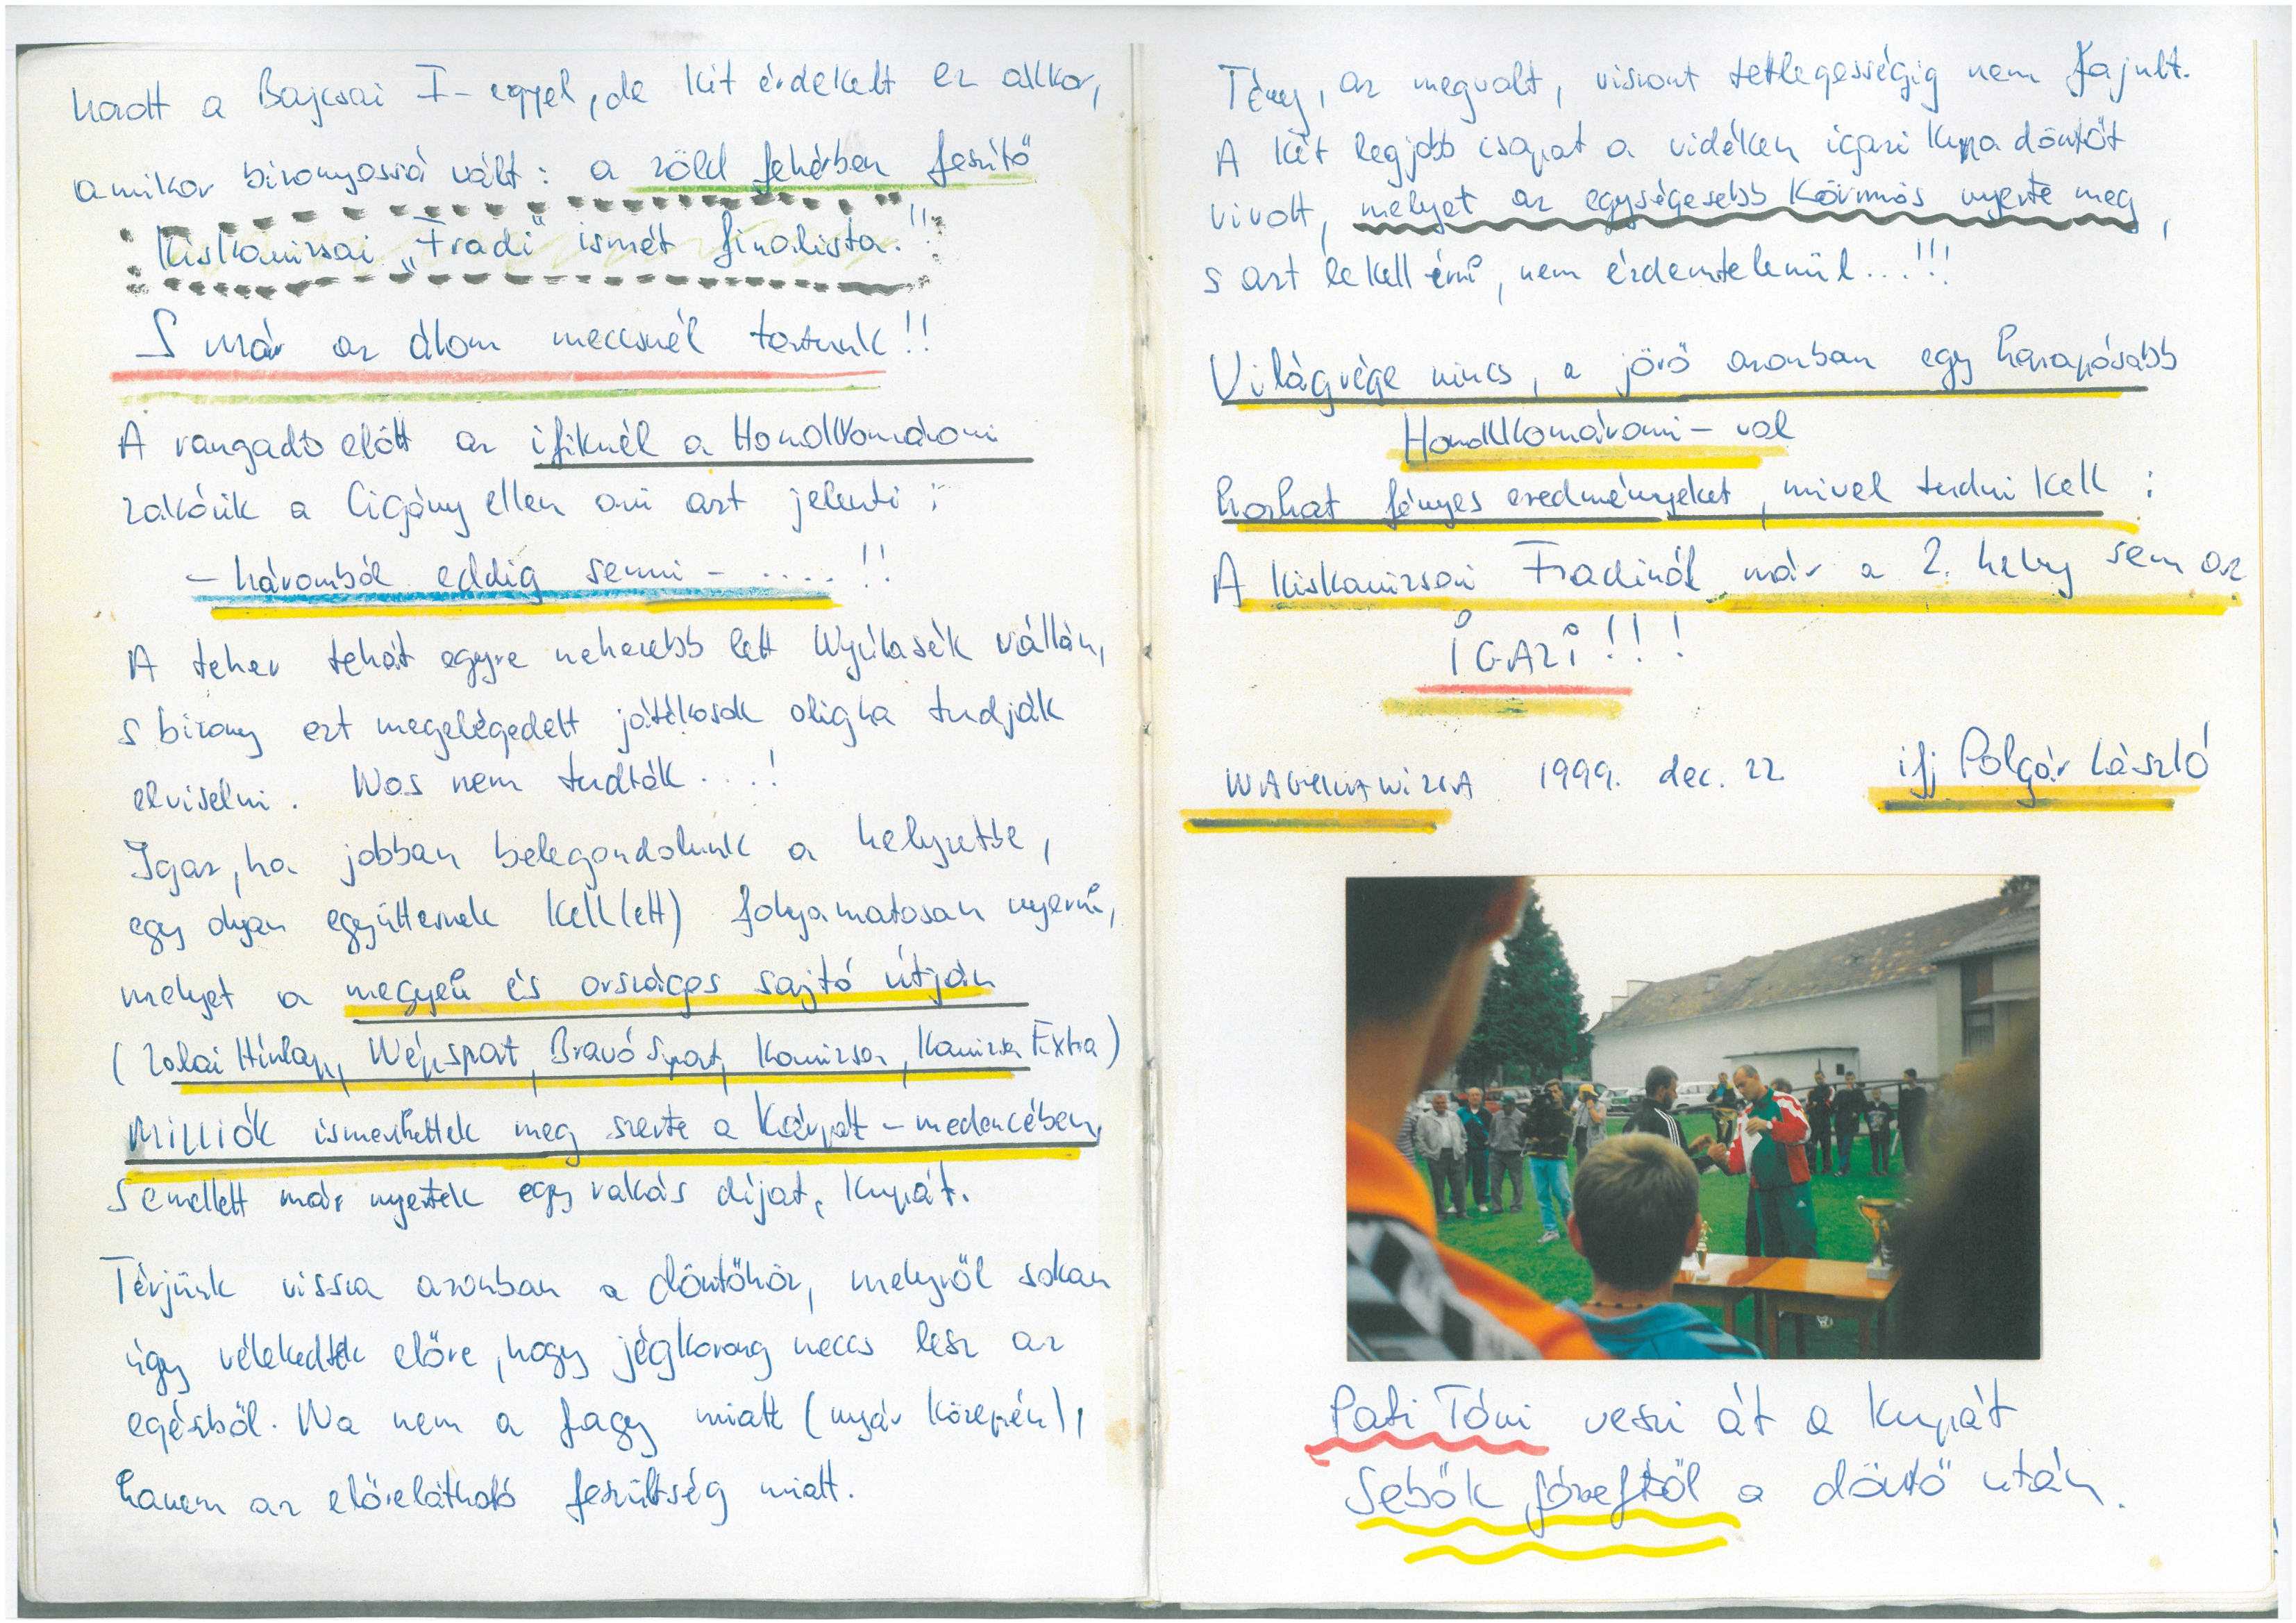 hadt a Bajcsai I-eggyel, de kit érdekelt ez akkor,
amikor bizonyossá vált: a zöld fehérben feszítő
Kiskanizsai „Fradi" ismét finalista.!!
S már az álom meccsnél tartunk!!
A rangadó előtt az ifiknél a HomoKKomáromi
zakózik a Cigány ellen ami azt jelenti:
- háromból eddig semmi - ....!!
A teher tehát egyre nehezebb lett Nyúlasék vállán,
s bizony ezt megelégedett játékosok aligha tudják
elviselni. Nos nem tudták...!
Igaz, ha jobban belegondolunk a helyzetbe,
egy olyan együttesnek kell(ett) folyamatosan nyerni,
melyet a megyei és országos sajtó útján
(Zalai Hírlap, Népsport, Bravó Sport, Kanizsa, Kanizsa Extra)
Milliók ismerhettek meg szerte a Kárpát-medencében,
S emellett már nyertek egy rakás díjat, kupát.
Térjünk vissza azonban a döntőhöz, melyről sokan
úgy vélekedtek előre, hogy jégkorong meccs lesz az
egészből. Na nem a fagy miatt (nyár közepén),
hanem az előrelátható feszültség miatt.
Tény, az megvolt, viszont tettlegességig nem fajult.
A két legjobb csapat a vidéken igazi kupa döntőt
vívott, melyet az egységesebb Körmös nyerte meg,
s azt le kell írni, nem érdemtelenül...!!!
Világvége nincs, a jövő azonban egy harapósabb
HomoKKomáromi-val
hozhat fényes eredményeket, mivel tudni kell:
A kiskanizsai Fradinál már a 2. hely sem az
IGAZI!!!
NAGYKANIZSA 1999. dec. 22 ifj Polgár László
Pati Tóni veszi át a kupát
Sebők Józseftől a döntő után.